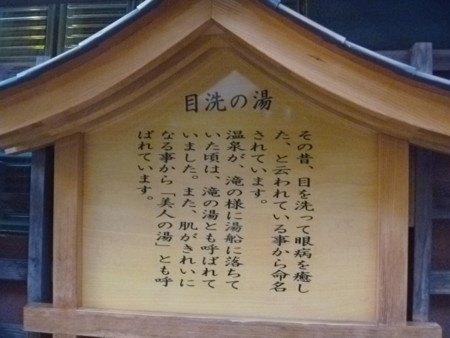 目洗の湯
その昔、目を洗って眼病を癒し
た、と云われている事から命名
されています。
温泉が、滝の様に湯船に落ちて
いた頃は、滝の湯とも呼ばれて
いました。また、肌がきれいに
なる事から「美人の湯」とも呼
ばれています。